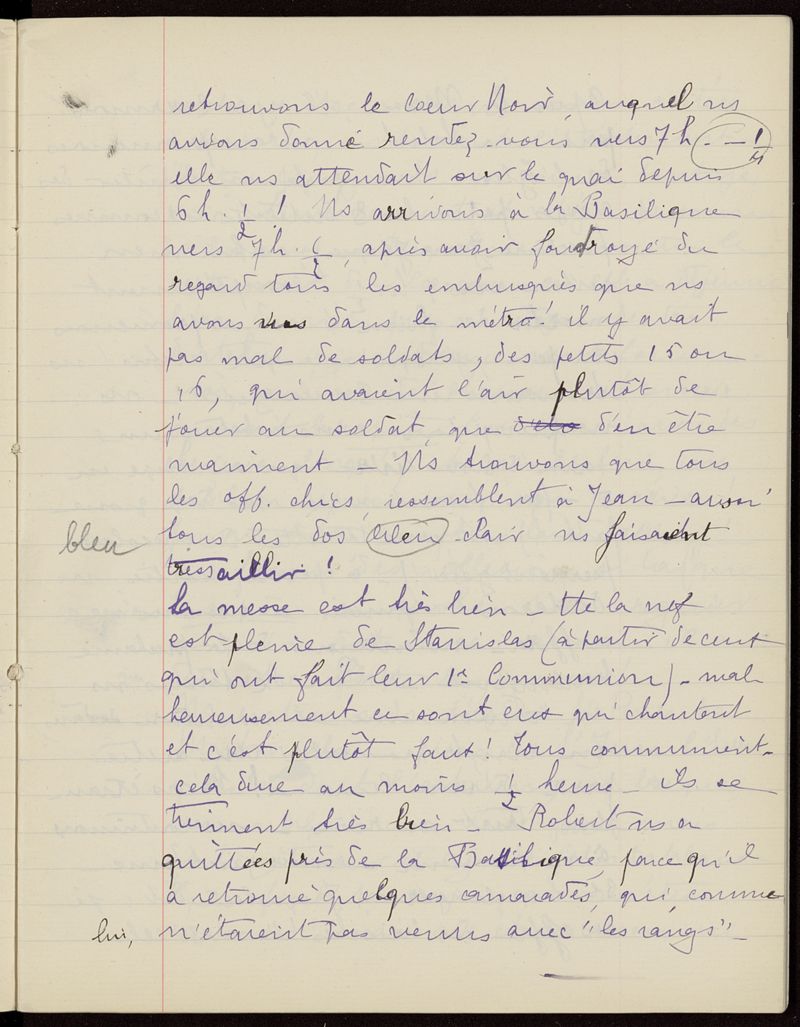 retrouvons le Cœur Noir, auquel ns
avions donné rendez-vous vers 7 h. - 1/4
elle ns attendait sur le quai depuis
6 h. 1/2 ! Ns arrivons à la Basilique
vers 7 h. 1/2, après avoir foudroyé du
regard tous les embusqués que ns
avons vus dans le métro ! il y avait
pas mal de soldats, des petits 15 ou
16, qui avaient l'air plutôt de
jouer au soldat, que d'en être
vraiment - Ns trouvons que tous
les off. chics, ressemblent à Jean - aussi
bleu tous les dos bleu clair ns faisaient
tressaillir !
La messe est très bien - tte la nef
est pleine de Stanislas (à partir de ceux
qui ont fait leur 1re Communion) - mal
heureusement ce sont eux qui chantent
et c'est plutôt faux ! Tous communient -
cela dure au moins 1/2 heure - ils se
tiennent très bien - Robert ns a
quittées près de la Basilique, parce qu'il
a retrouvé quelques camarades, qui, comme
lui, n'étaient pas venus avec "les rangs" -